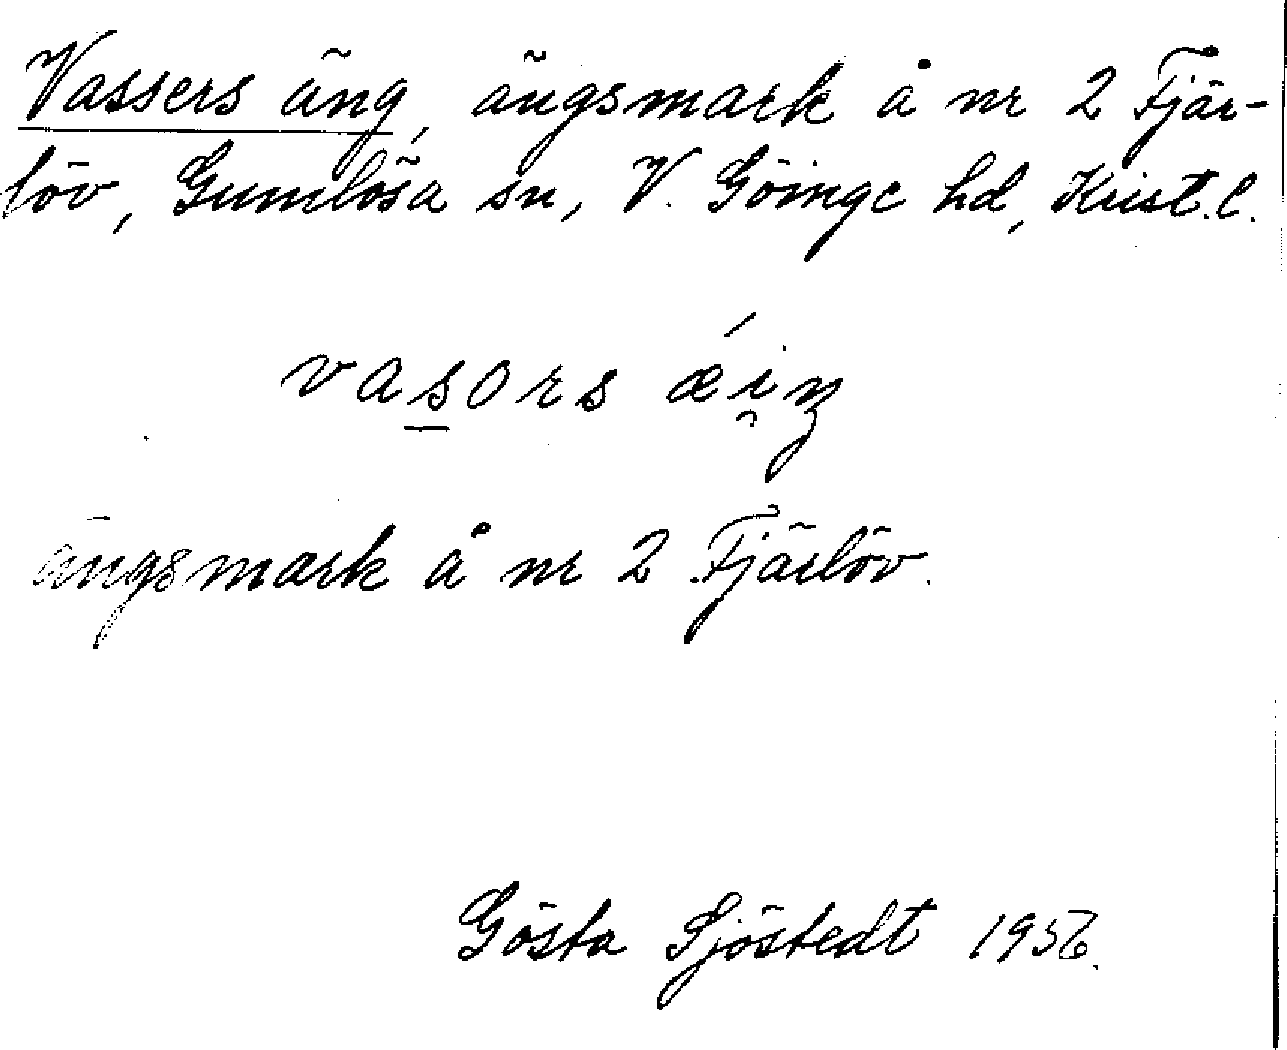 Vassers äng, ängsmark å nr 2 Fjär-
löv, Gumlösa sn, V. Göinge hd, Krist.l.
vasors æ´i̯ŋ
ängsmark å nr 2 Fjärlöv.
Gösta Sjöstedt 1956.